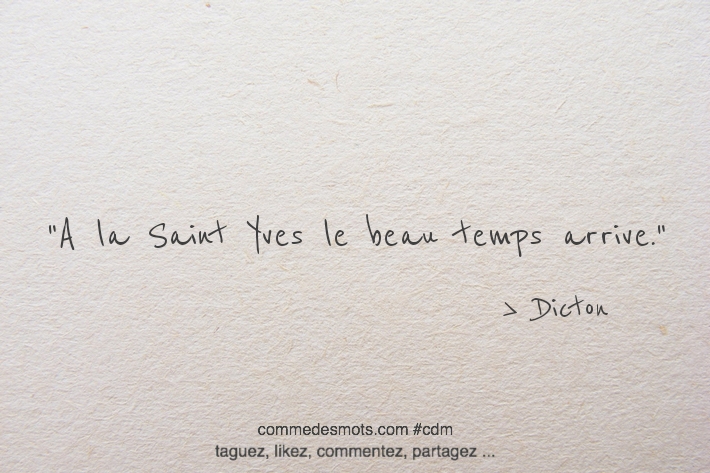 "A la Saint Yves le beau temps arrive."
> Dicton
commedesmots.com #cdm
taguez, likez, commentez, partagez ...